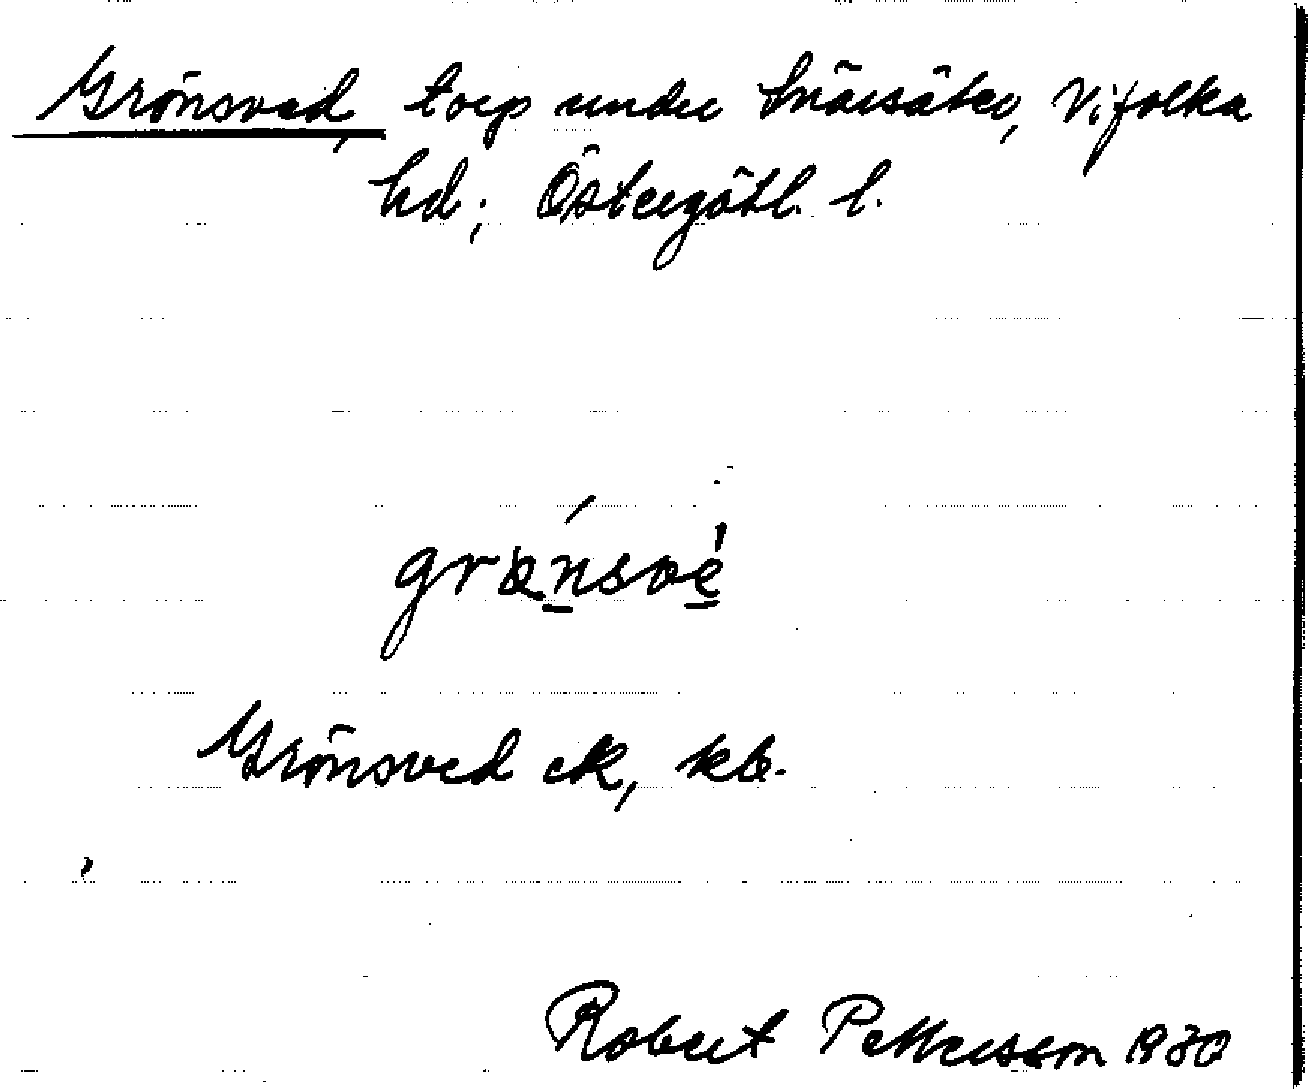 Grönsved, torp under Snärsäter, Vifolka
hd; Östergötl. l.
Grönsved ek, kb.
Robert Pettersson 1930